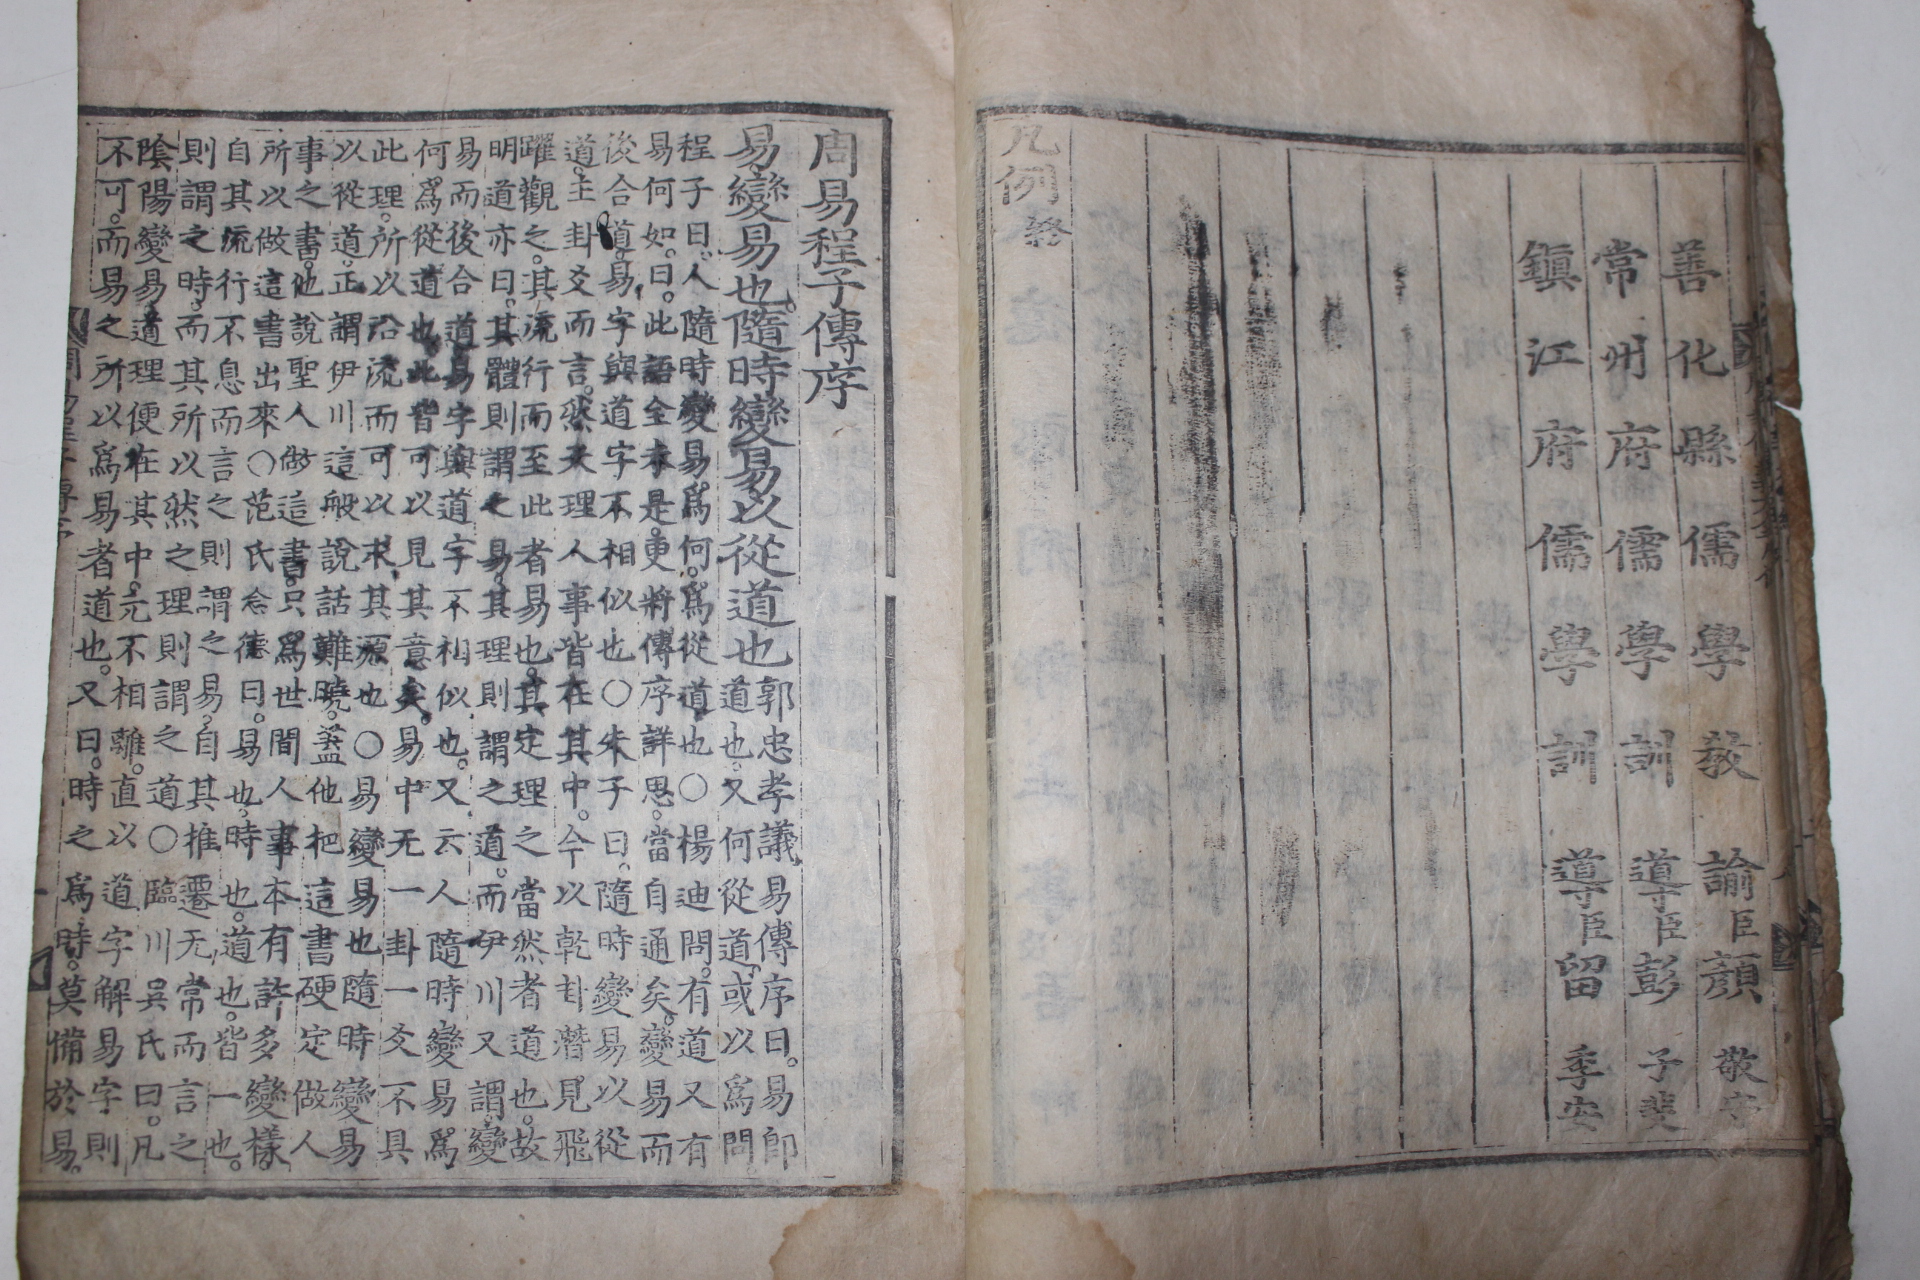 善化縣儒學教諭臣顏敬守
常州府儒學訓導臣彭子斐
鎮江府儒學訓導臣留季安
凡例終
周易程子傳序
易變易也。隨時變易以從道也
郭忠孝議易傳序曰。易即
道也。又何從道。或以爲問
程子曰。人隨時變易。爲何。爲從道也〇楊迪問。有道又有
易何如。曰。此語全未是。更將傳序詳思。當自通矣。變易而
後合道。易字與道字不相似也〇朱子曰。隨時變易以從
道。主卦爻而言。然天理人事皆在其中。今以乾卦潛見飛
躍觀之。其流行而至此者易也。其定理之當然者道也。故
明道亦曰。其體則謂之易。其理則謂之道。而伊川又謂。變
易而後合道。易字與道字不相似也。又云人隨時變易爲
何。爲從道也。此皆可以見其意矣。易中无一卦一爻不具
此理。所以沿流而可以求其源也〇易變易也隨時變易
以從道。正謂伊川這般說話難曉。蓋他把這書硬定做人
事之書。他說聖人做這書。只爲世間人事本有許多變樣。
所以做這書出來〇范氏念德曰。易也。時也。道也。皆一也。
自其流行不息而言之則謂之易。自其推遷无常而言之
則謂之時。而其所以然之理則謂之道〇臨川吳氏曰。凡
陰陽變易道理便在其中。元不相離。直以道字解易字則
不可。而易之所以爲易者道也。又曰。時之爲時。莫備於易。